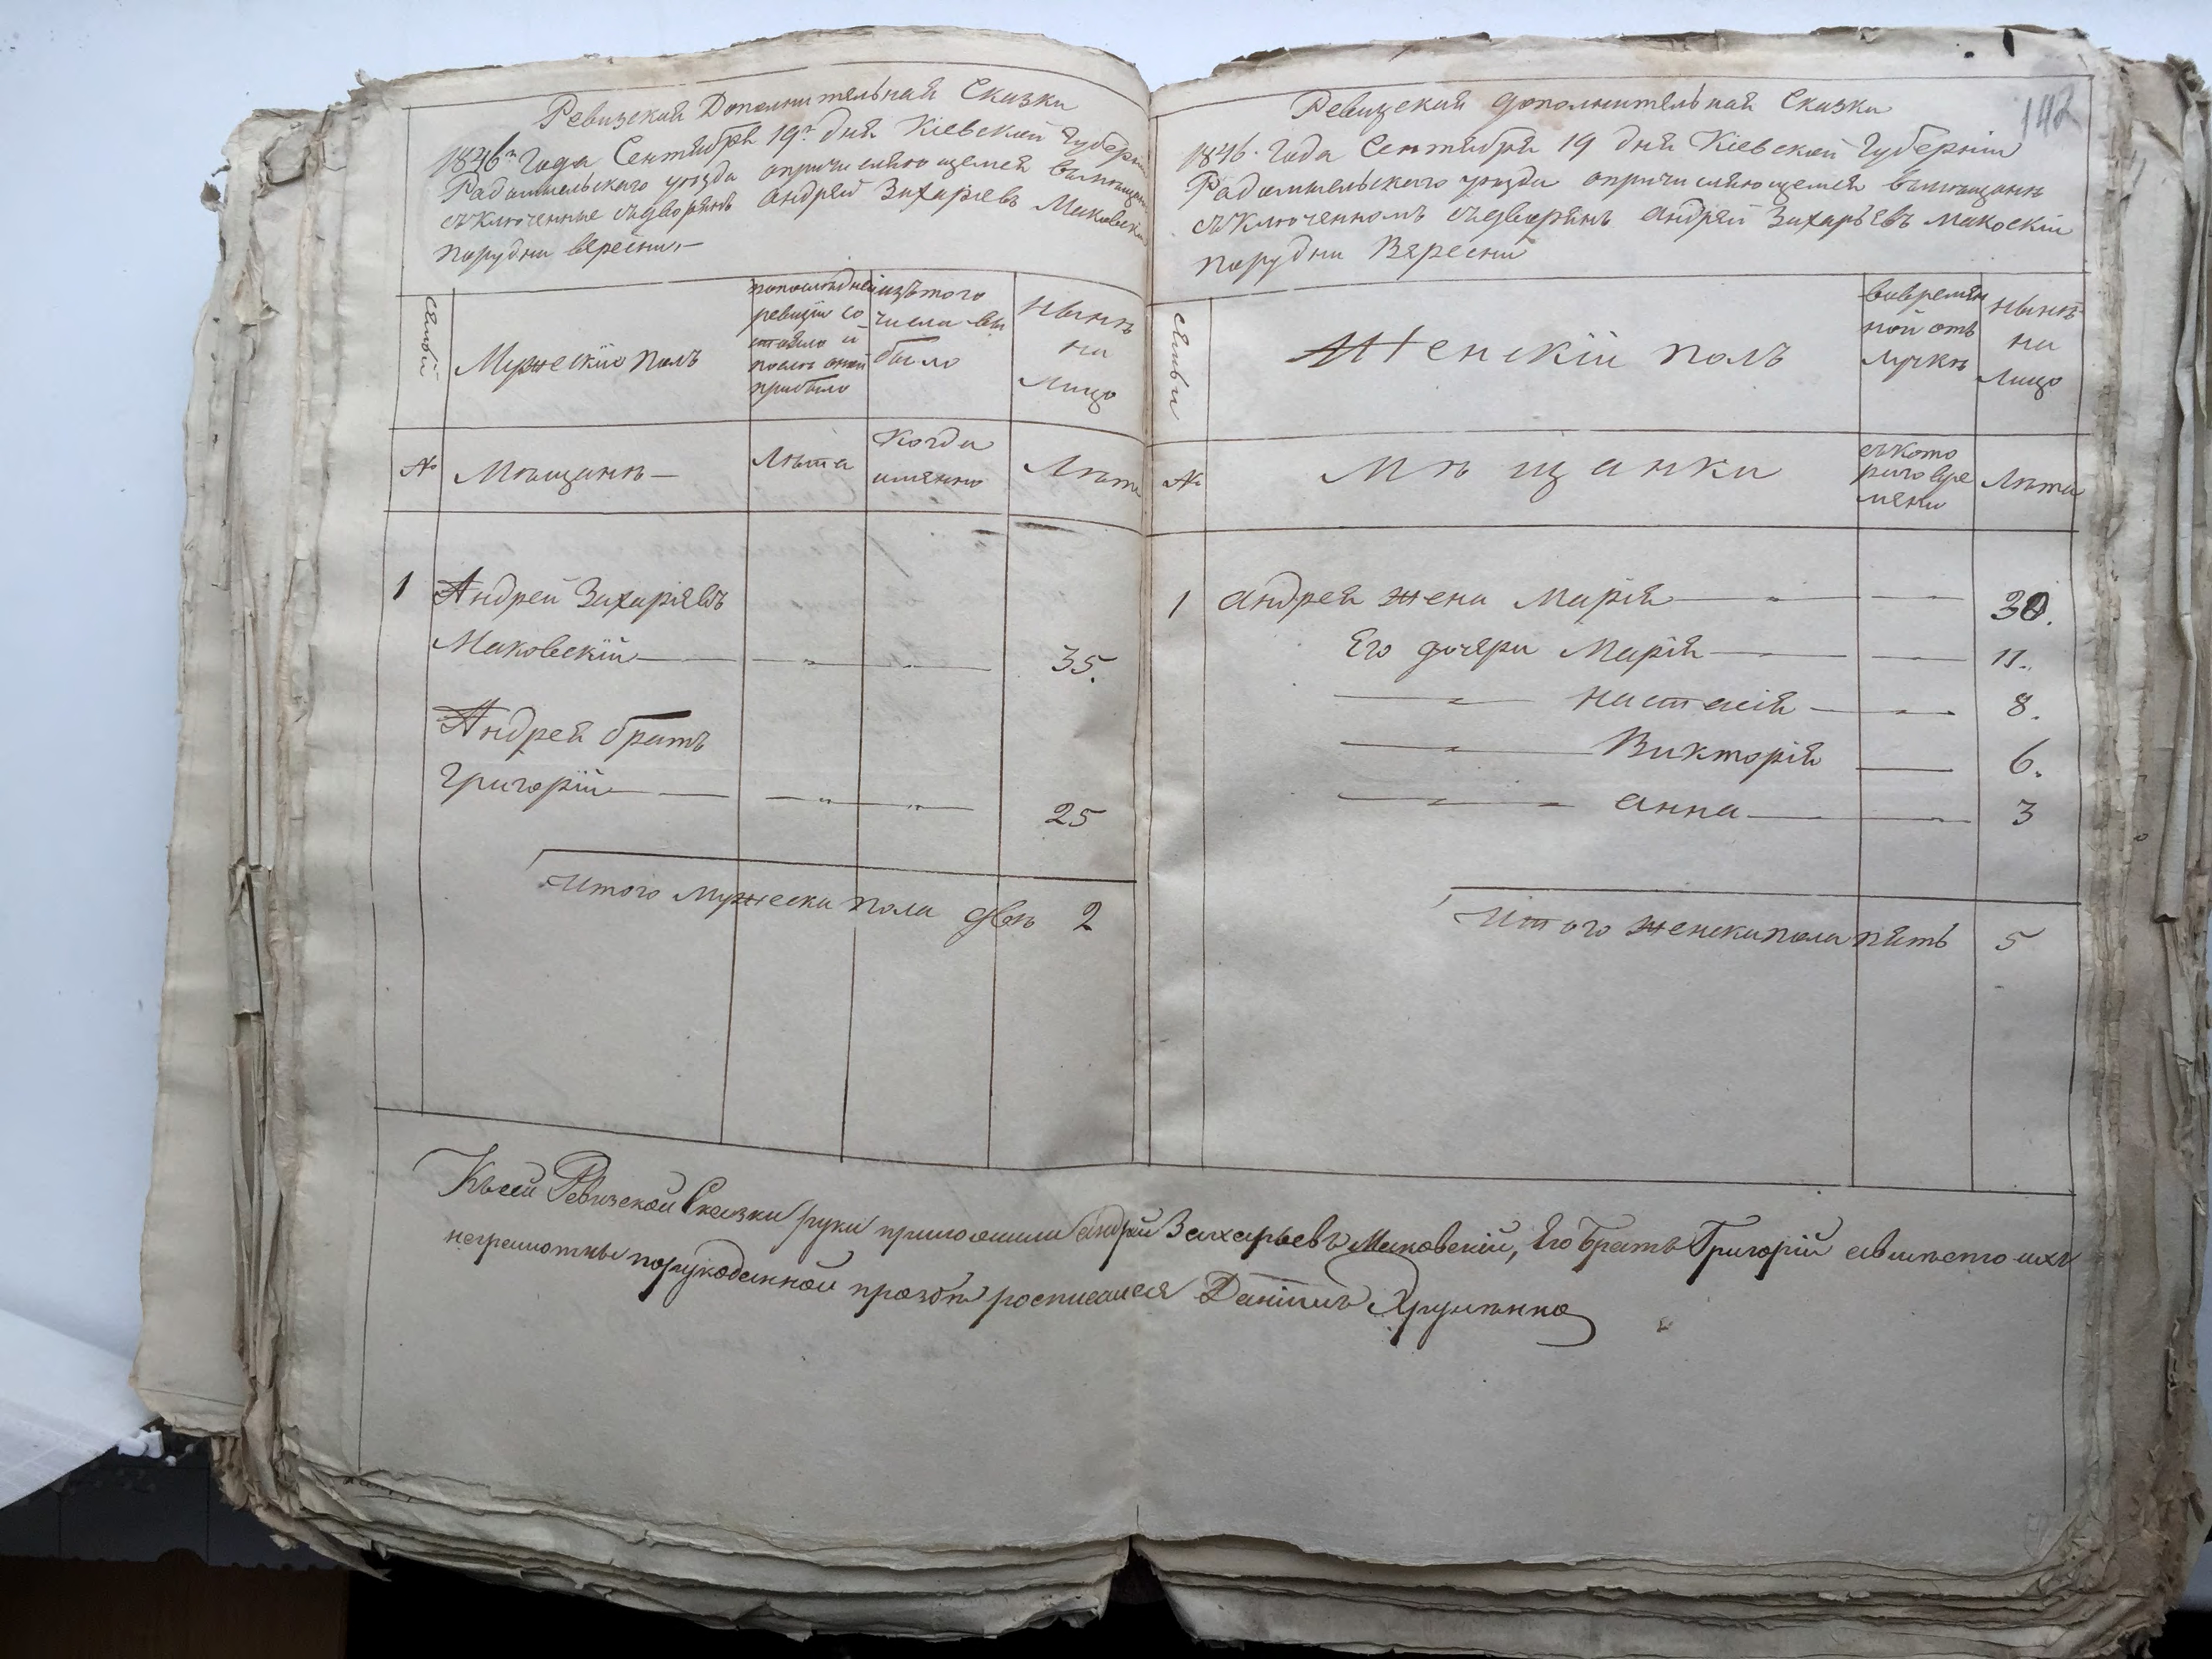 Ревизская Дополнительная Сказка
1846го Года Сентября 19го дня Кіевской Губерніи
Радомысльского уезда опричисляющемся вмещани
съключенные съдворянъ андрей Захаріевъ Маковскій
порудни вересни.—
семьи
Мужескій полъ
попоследней ревизіи состояло и после оной прибыло
изътого числа выбыло
Нынѣ на лицо
№
Мѣщанѣ—
Лѣта
Когда имянно
Лѣта
1 Андрей Захаріявъ
Маковскій 35.
Андрея братъ
Григорій 25
Итого Мужеска пола двѣ 2
142
Ревизская дополнительная Сказка
1846. Года Сентября 19 дня Кіевской Губерніи
Радомысльского уезда опричисляющемся вмещанѣ
съключенномъ съдворянъ андрей Захарьявъ макоскій
порудни Вяресни
семьи
Женскій полъ
вовремян ной отъ лучкѣ
Нынѣ на лицо
№
Мѣщанки
съкото рого вре мяни
Лѣта
1 андрея жена Марія 30.
Его дочяри Марія 11.
настасія 8.
Викторія 6.
анна 3
Итого женска пола пять 5
Къ сей Ревизской Сказки руки приложили андрей Захарьевъ Маковскій, Его братъ Григорій авместо ихъ
неграмотны порукоданной прозбѣ росписался Даніилъ